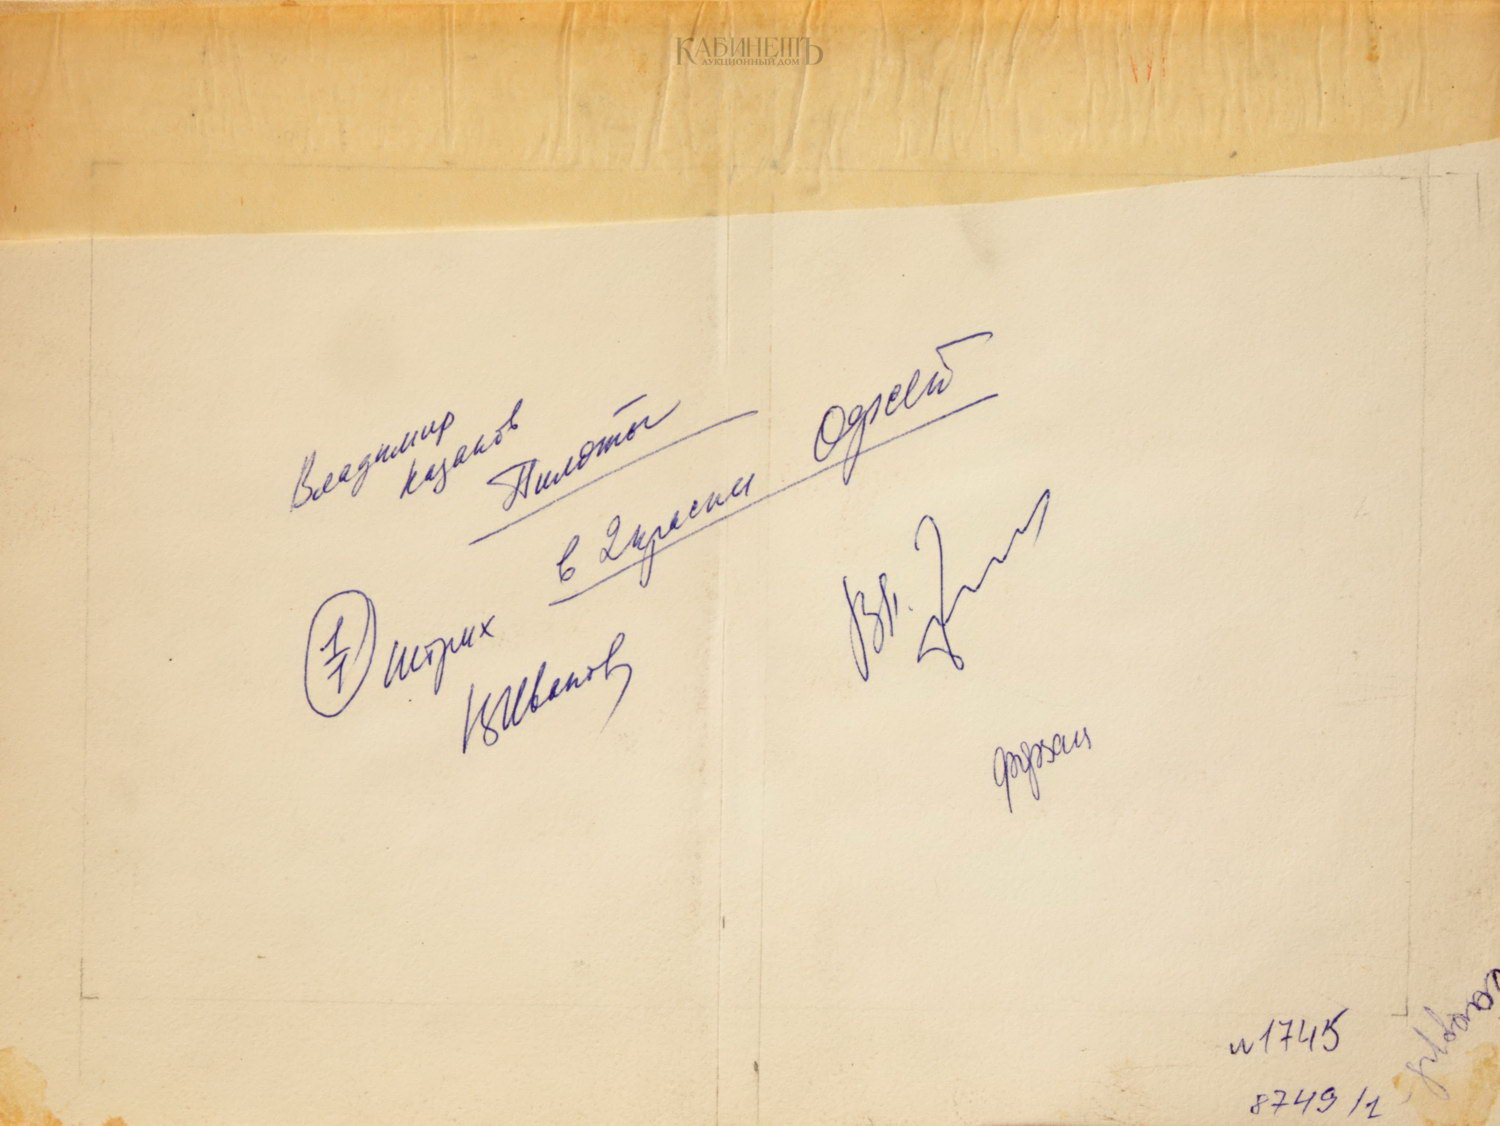 КАБИНЕТЪ
АУКЦИОННЫЙ ДОМ
Владимир
Казаков
Пилоты
в 2 краски Офсет
1/1 штрих
КИванов
Вл.
форзац
и1745
8749/1